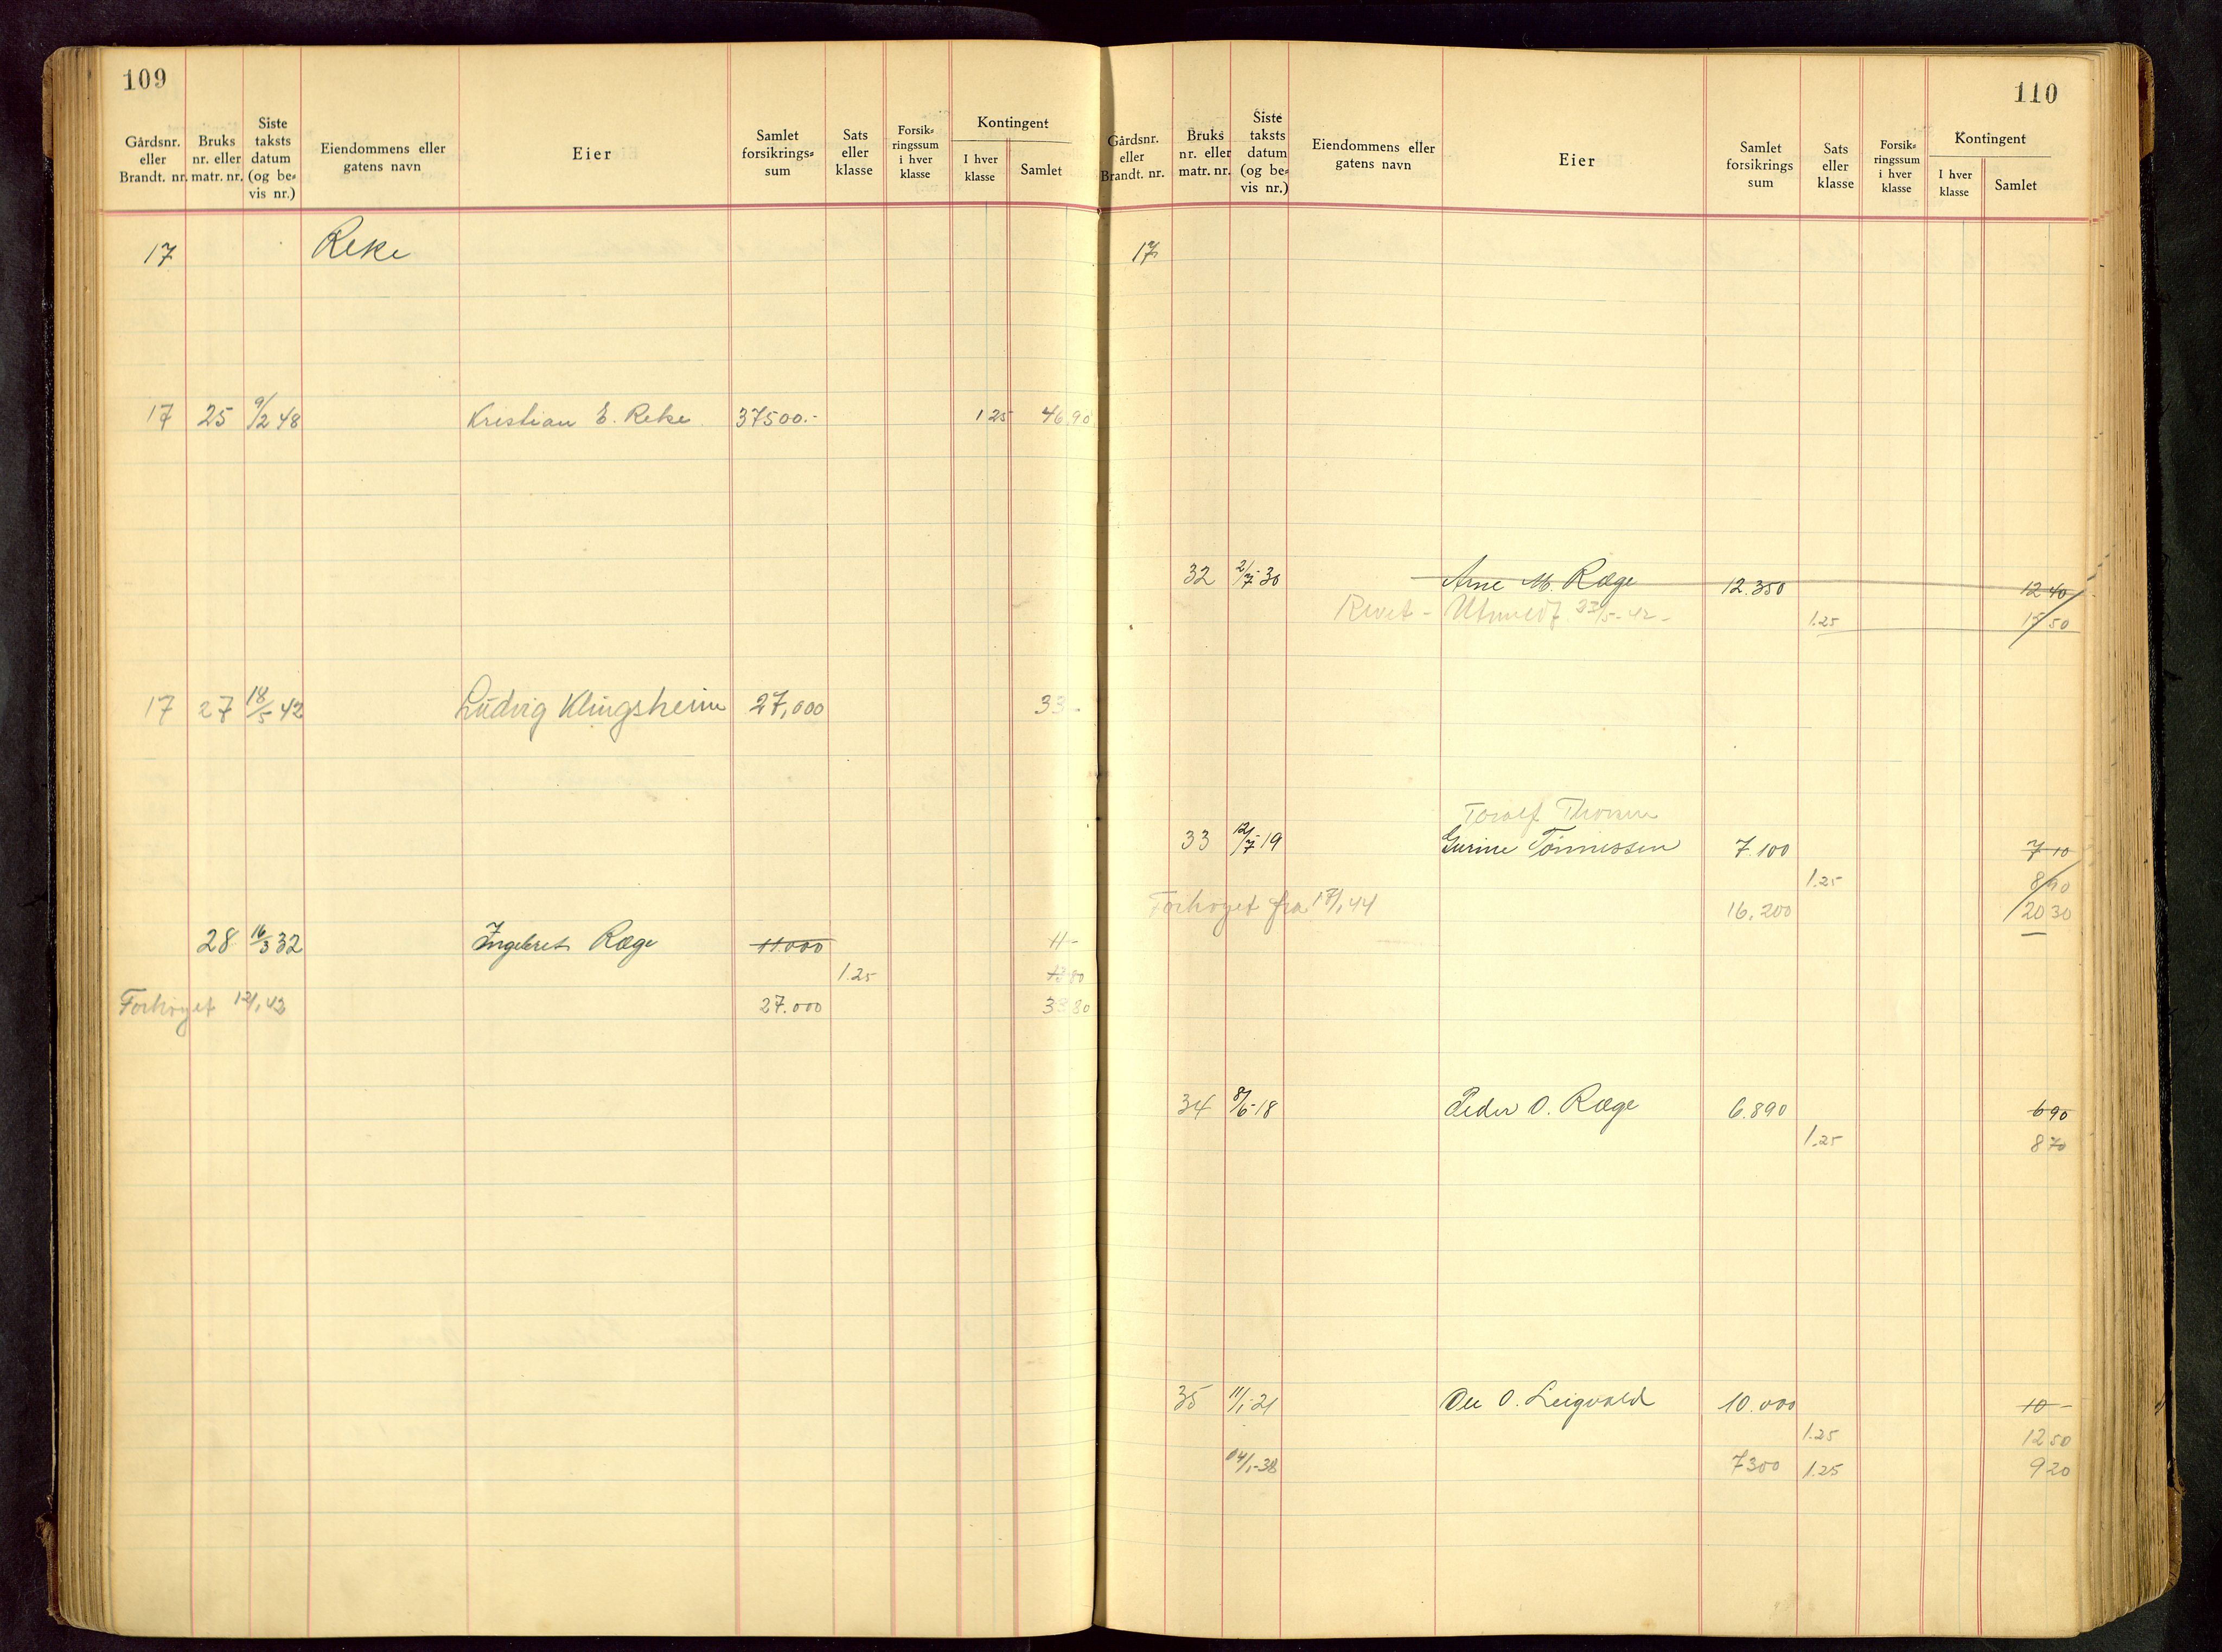 109
Gårdsnr. eller Brandt. nr. Bruks nr. eller matr. nr. Siste taksts datum (og be= vis nr.) Eiendommens eller gatens navn Eier Samlet forsikrings= sum Sats eller klasse Forsik= ringssum i hver klasse Kontingent I hver klasse Samlet
17 Reke
17 25 9/2 48 Kristian E. Reke. 37500.- 1 25 46 90
17 27 18/5 42 Ludvig Klingsheim 27,000 33 -
28 16/3 32 Ingebret Ræge 11.000 11 -
1.25 13 80
Forhøyet 12/1 43 27.000 33 80
110
Gårdsnr. eller Brandt. nr. Bruks nr. eller matr. nr. Siste taksts datum (og be= vis nr.) Eiendommens eller gatens navn Eier Samlet forsikrings sum Sats eller klasse Forsik= ringssum i hver klasse Kontingent I hver klasse Samlet
17
32 2/7-30 Arne M. Ræge 12.350 12 40
Revet - Utmeldt 23/5-42- 1.25 15 50
Torolf
33 12/7-19 Gurine Tønnessen 7.100 7 10
1.25 8 90
Forhøyet fra 17/1 44 16.200 20 30
34 8/6-18 Peder O. Ræge 6.890 6 90
1.25 8 70
35 11/1-21 Ole O. Leigvold 10.000 10 -
1.25 12 50
04/1-38 7300 1.25 9 20